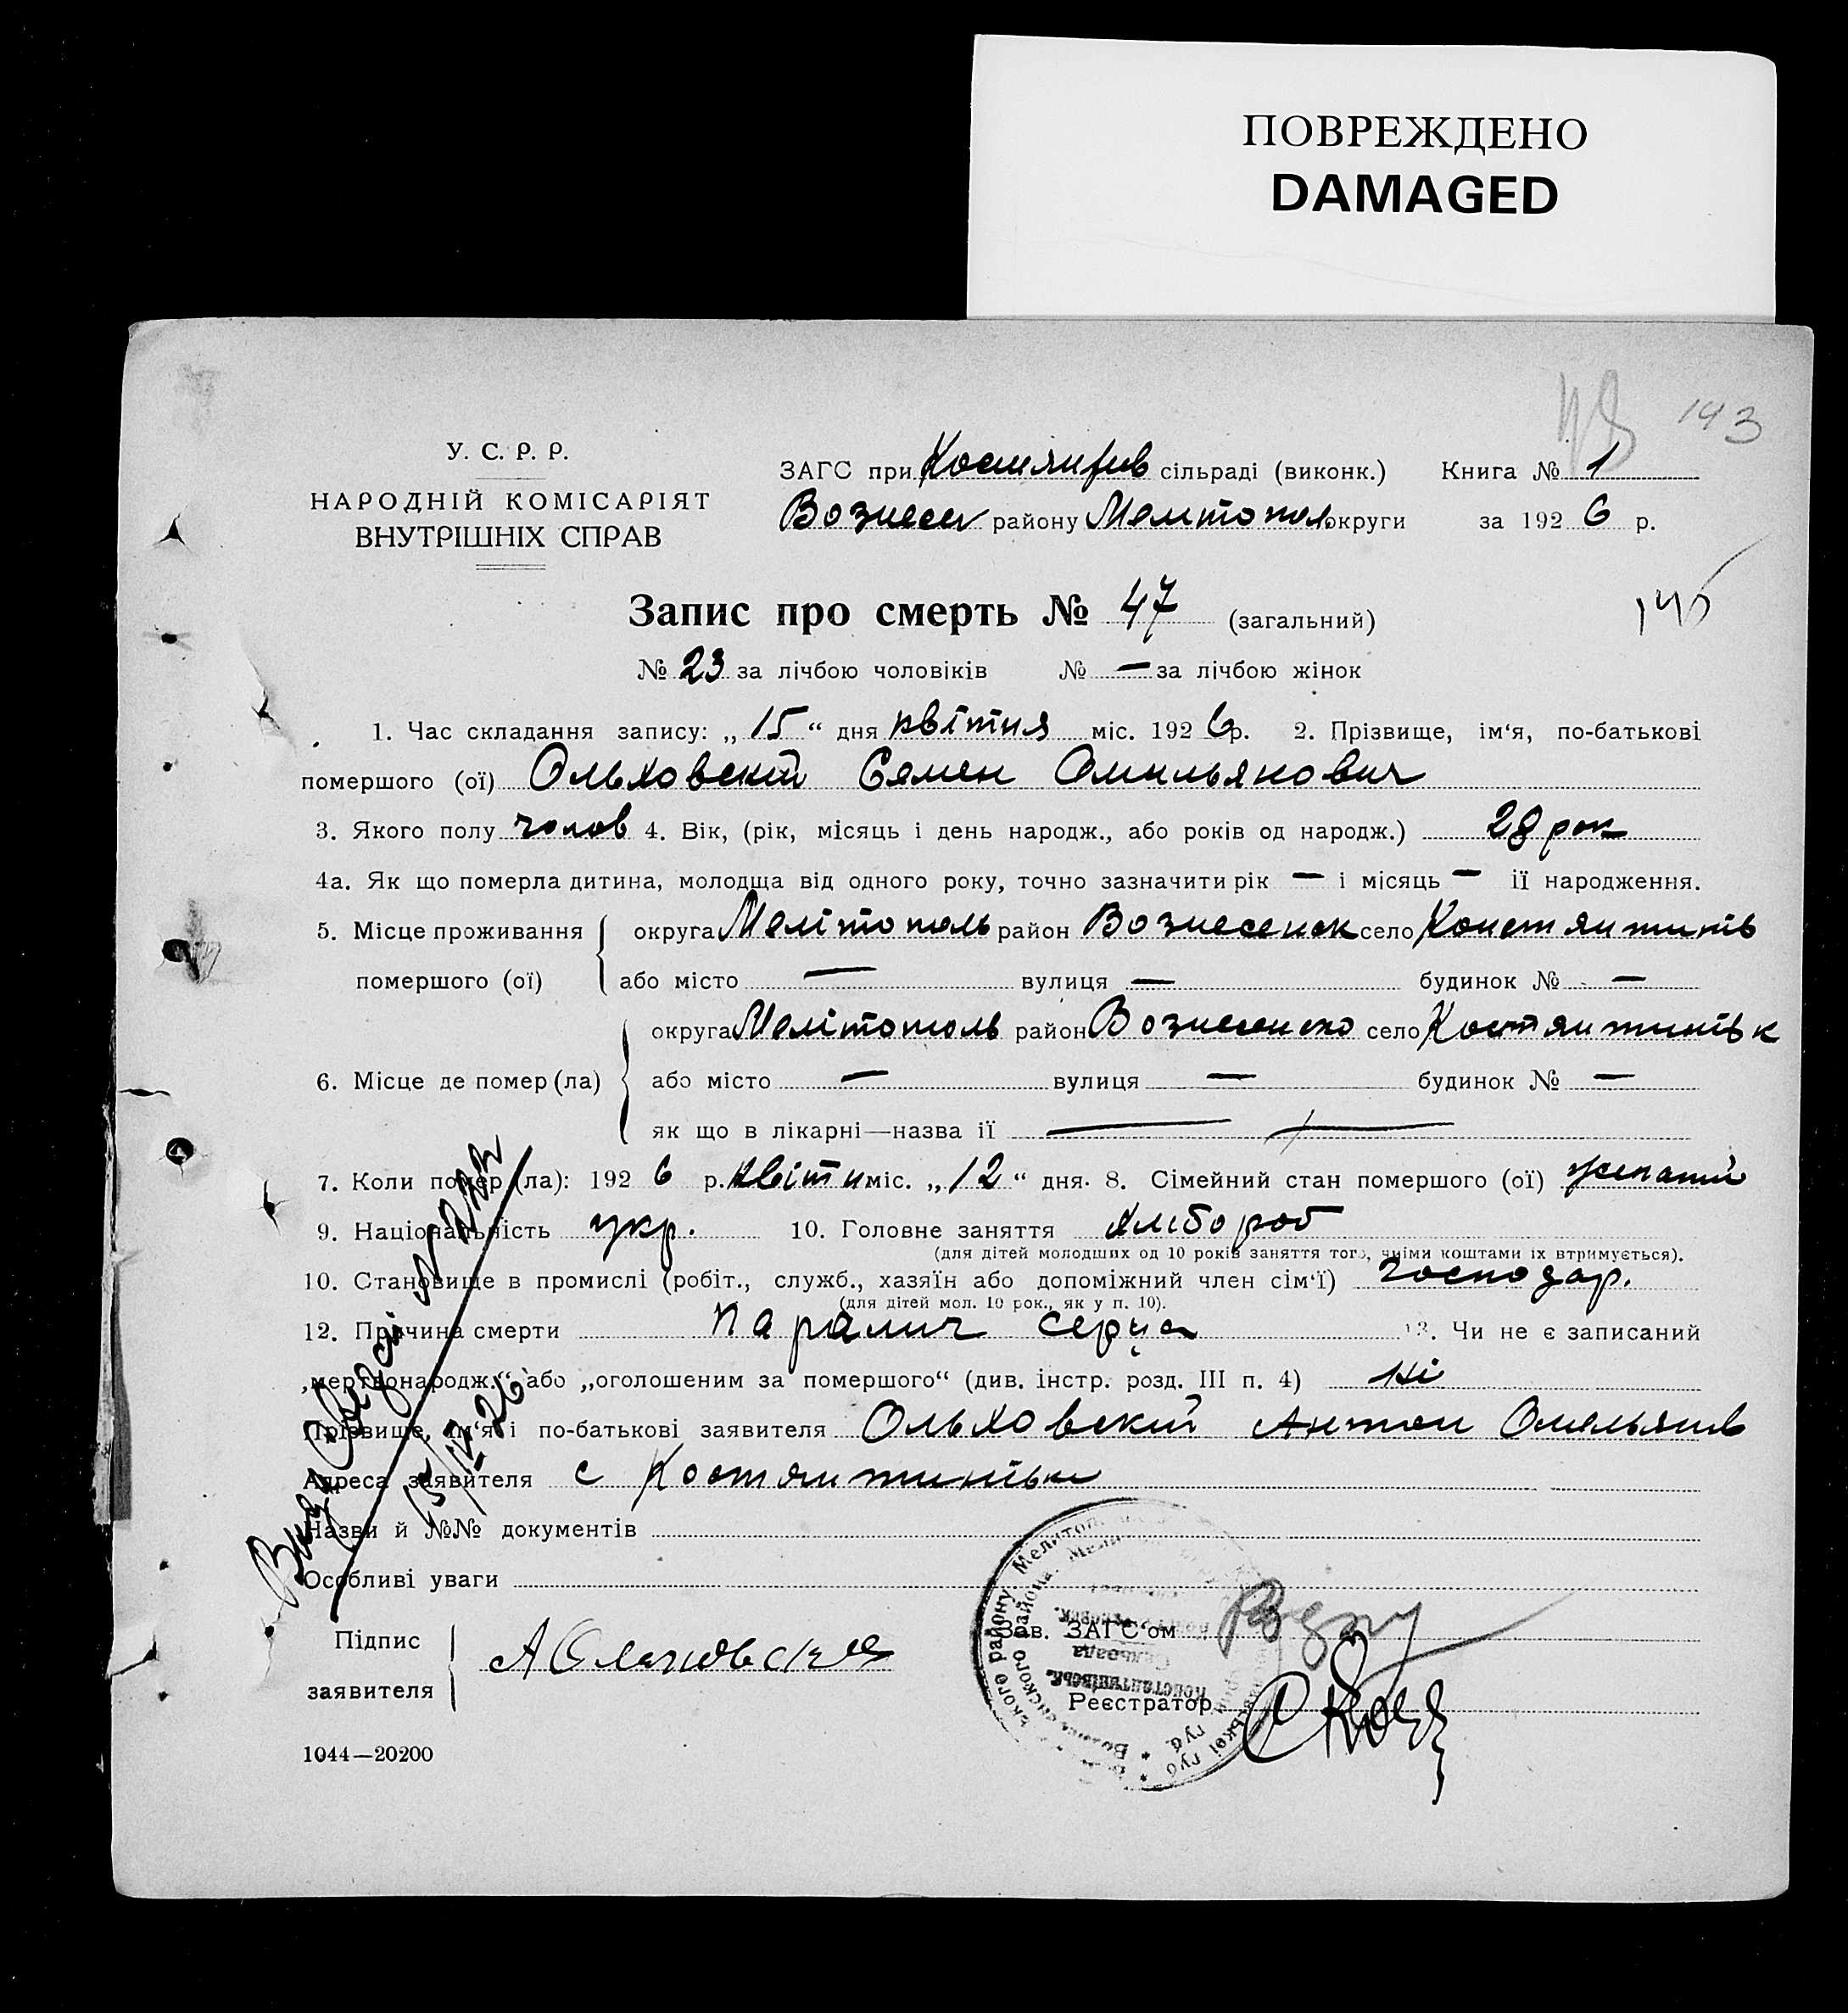 ПОВРЕЖДЕНО
DAMAGED
143
У. С. Р. Р.
НАРОДНІЙ КОМІСАРІЯТ
ВНУТРІШНІХ СПРАВ
ЗАГС при сільраді (виконк.) Книга № 1
Вознесен району Мелитопол округи за 192 6 р.
Запис про смерть № 47 (загальний)
№ 23 за лічбою чоловіків № — за лічбою жінок
1. Час складання запису: „ 15 “ дня квітня міс. 192 6 р. 2. Прізвище, ім‘я, по-батькові
помершого (ої) Ольховский Семен Омильянович
3. Якого полу чолов 4. Вік, (рік, місяць і день народж., або років од народж.) 28 рок
4а. Як що померла дитина, молодща від одного року, точно зазначити рік — і місяць — ії народження.
5. Місце проживання округа Мелітополь район Вознесенск село Констянтинів
помершого (ої) або місто — вулиця — будинок № —
округа Мелітополь район Вознесенско село Костянтинівк
6. Місце де помер (ла) або місто — вулиця — будинок № —
як що в лікарні—назва ії —
7. Коли помер (ла): 192 6 р. квітн міс. „ 12 “ дня. 8. Сімейний стан помершого (ої) женатий
9. Національність укр. 10. Головне заняття хлібороб
(для дітей молодших од 10 років заняття того, чиїми коштами їх втримується).
10. Становище в промислі (робіт., служб., хазяїн або допоміжний член сім‘ї) господар.
(для дітей мол. 10 рок., як у п. 10).
12. Причина смерти Паралич серца 13. Чи не є записаний
„мертвонародж.“ або „оголошеним за помершого“ (див. інстр. розд. III п. 4) ні
Прізвище, ім‘я і по-батькові заявителя Ольховский Антон Омельянов
Адреса заявителя с Костянтинівки
Назви й №№ документів
Особливі уваги
15/IV 26
Зав. ЗАГС‘ом
Підпис
заявителя
Реєстратор
1044—20200